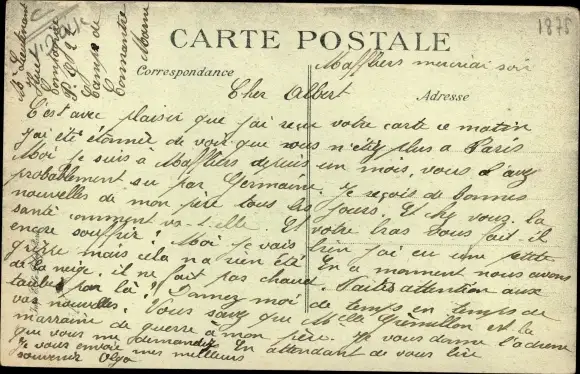 1875
CARTE POSTALE
Correspondance
Adresse
Maffliers mercredi soir
Mr Lieutenant
Compagnie
Camp de
Marne
Cher Albert
C'est avec plaisir que j'ai reçu votre carte ce matin
j'ai été étonnée de voir que vous n'étiez plus à Paris
Moi je suis à Maffliers depuis un mois, vous l'avez
probablement su par Germaine. Je reçois de bonnes
nouvelles de mon père tous les jours. Et chez vous la
santé comment va-t-elle. Et votre bras vous fait-il
encore souffrir? Moi je vais bien j'ai eu une petite
grippe mais cela n'a rien été. En ce moment nous avons
de la neige, il ne fait pas chaud. Faites attention aux
par là! Donnez moi de temps en temps de
vos nouvelles. Vous savez que Melle est la
marraine de guerre à mon père. Je vous donne l'adresse
que vous me demandez. En attendant de vous lire
Je vous envoie mes meilleurs
souvenirs Olga